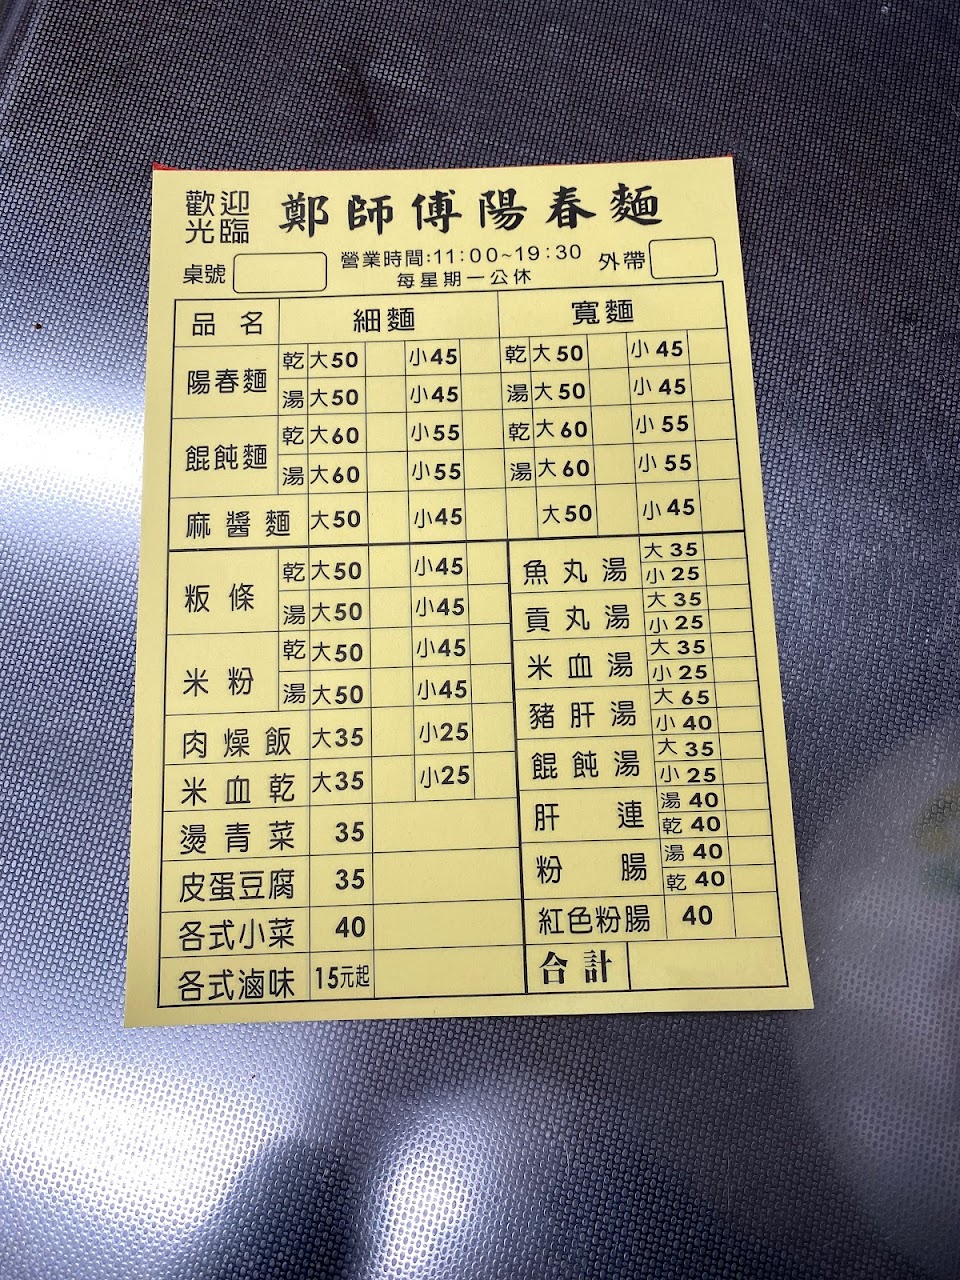 歡迎光臨 鄭師傅陽春麵
桌號 營業時間:11:00~19:30 外帶
每星期一公休
品名 細麵 寬麵
陽春麵 乾 大50 小45 乾 大50 小45
湯 大50 小45 湯 大50 小45
餛飩麵 乾 大60 小55 乾 大60 小55
湯 大60 小55 湯 大60 小55
麻醬麵 大50 小45 大50 小45
粄條 乾 大50 小45
湯 大50 小45
米粉 乾 大50 小45
湯 大50 小45
肉燥飯 大35 小25
米血乾 大35 小25
燙青菜 35
皮蛋豆腐 35
各式小菜 40
各式滷味 15元起
魚丸湯 大35
小25
貢丸湯 大35
小25
米血湯 大35
小25
豬肝湯 大65
小40
餛飩湯 大35
小25
肝連 湯40
乾40
粉腸 湯40
乾40
紅色粉腸 40
合計